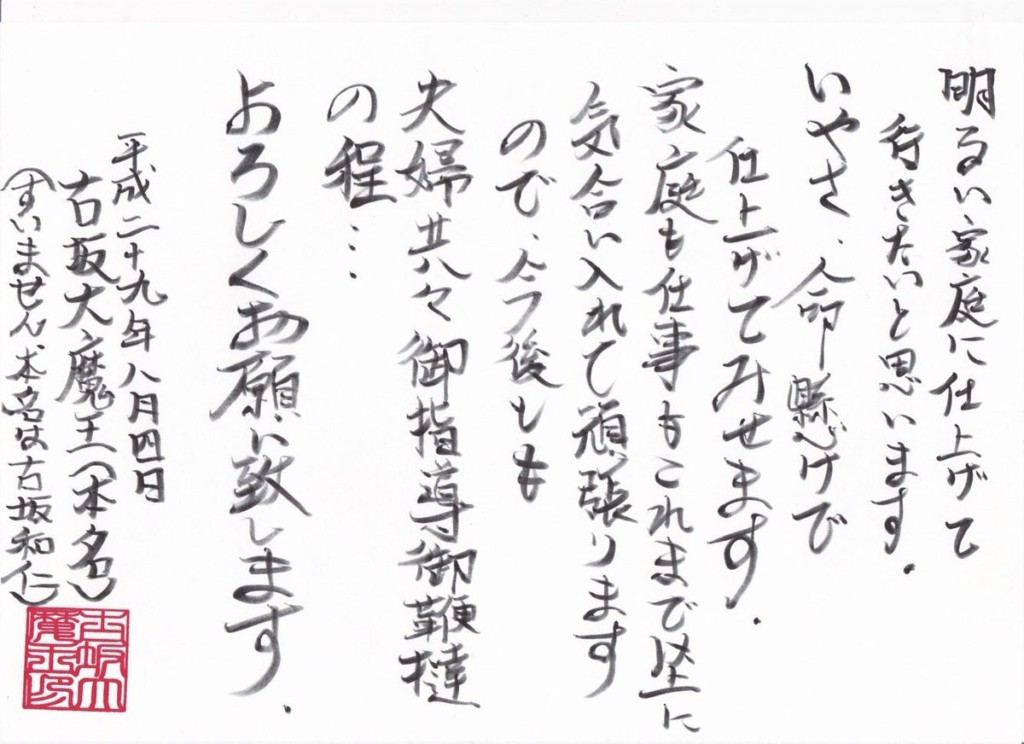 明るい家庭に仕上げて
行きたいと思います.
いやさ、命懸けで
仕上げてみせます.
家庭も仕事もこれまで以上に
気合い入れて頑張ります
ので、今後もも
夫婦共々御指導御鞭撻
の程…
よろしくお願い致します.
平成二十九年八月四日
古坂大魔王(本名)
(すいません、本名は古坂和仁)
古坂大
魔王印